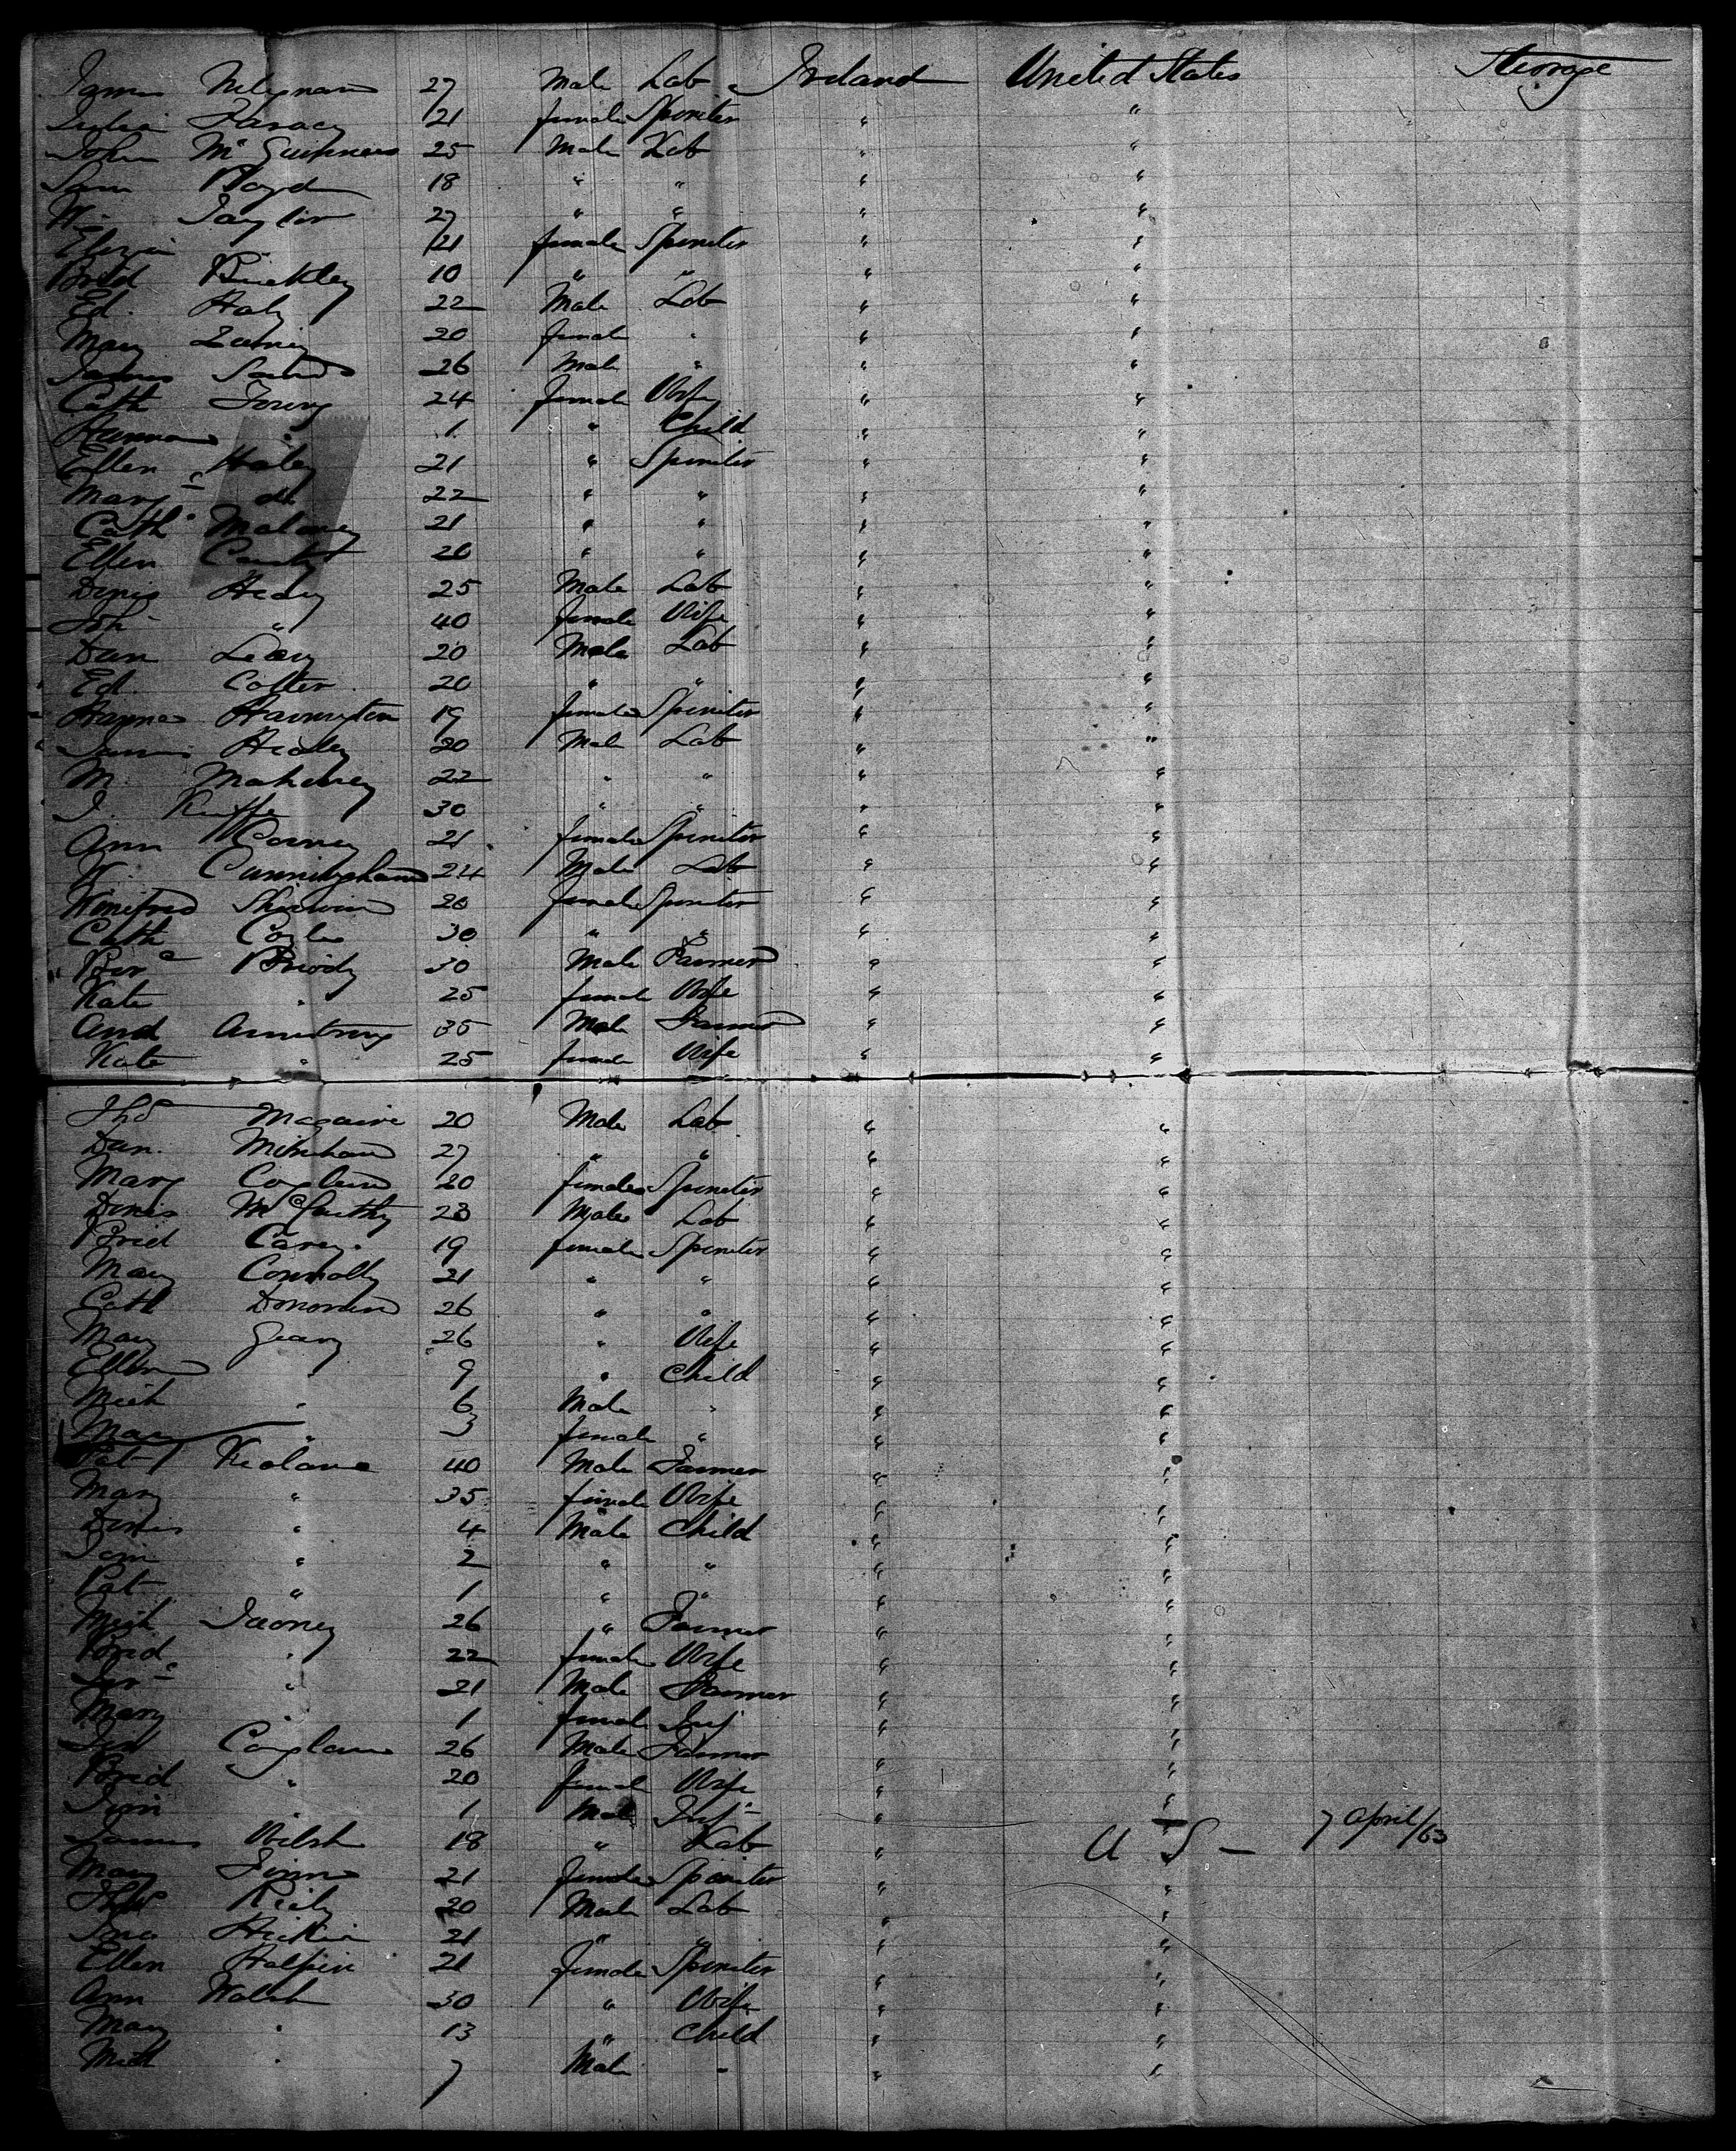 James 27 Male Lab Ireland United States Steerage
Julia 21 female Spinster " "
John McGuinness 25 Male Lab " "
Sam Boyd 18 " " " "
Wm Taylor 27 " " " "
21 female Spinster " "
Brid Buckley 10 " " " "
Ed. Haly 22 Male Lab " "
Mary 20 female " " "
James 26 Male " " "
Cath 24 female Wife " "
Hanna " 1 " Child " "
Ellen Haley 21 " Spinster " "
Margt do 22 " " " "
Cath Maloney 21 " " " "
Ellen 20 " " " "
Denis Healy 25 Male Lab " "
" 40 female Wife " "
Dan Leary 20 Male Lab " "
Ed. Cotter 20 " " " "
Hanna Harrington 19 female Spinster " "
James Healey 20 Male Lab " "
M. Mahoney 22 " " " "
J. Keeffe 30 " " " "
Ann 21 female Spinster " "
W. Cunningham 24 Male Lab " "
Winifred Sherwin 20 female Spinster " "
Cath Coyle 30 " " " "
Briody 30 Male Farmer " "
Kate " 25 female Wife " "
And Armstrong 35 Male Farmer " "
Kate " 25 female Wife " "
Thos Maguire 20 Male Lab " "
Dan. Minehan 27 " " " "
Mary 20 female Spinster " "
Denis McCarthy 23 Male Lab " "
Brid Carey. 19 female Spinster " "
Mary Connolly 21 " " " "
Cath Donovan 26 " " " "
Mary Geary 26 " Wife " "
Ellen " 9 " Child " "
Mich " 6 Male " " "
Mary " 3 female " " "
Pat 40 Male Farmer " "
Mary " 35 female Wife " "
Denis " 4 Male Child " "
Tom " 2 " " " "
Pat " 1 " " " "
Mich 26 " Farmer " "
Brid " 22 female Wife " "
" 21 Male Farmer " "
Mary " 1 female Inf " "
Coghlan 26 Male Farmer " "
Brid " 20 female Wife " "
" 1 Male Inf " "
James Welsh 18 " Lab " U S - 7 April/63
Mary Finn 21 female Spinster " "
Thos Reily 20 Male Lab " "
Jno Hickie 21 " " " "
Ellen Halpin 21 female Spinster " "
Ann Walsh 30 " Wife " "
Mary " 13 " Child " "
Mich " 7 Male " " "